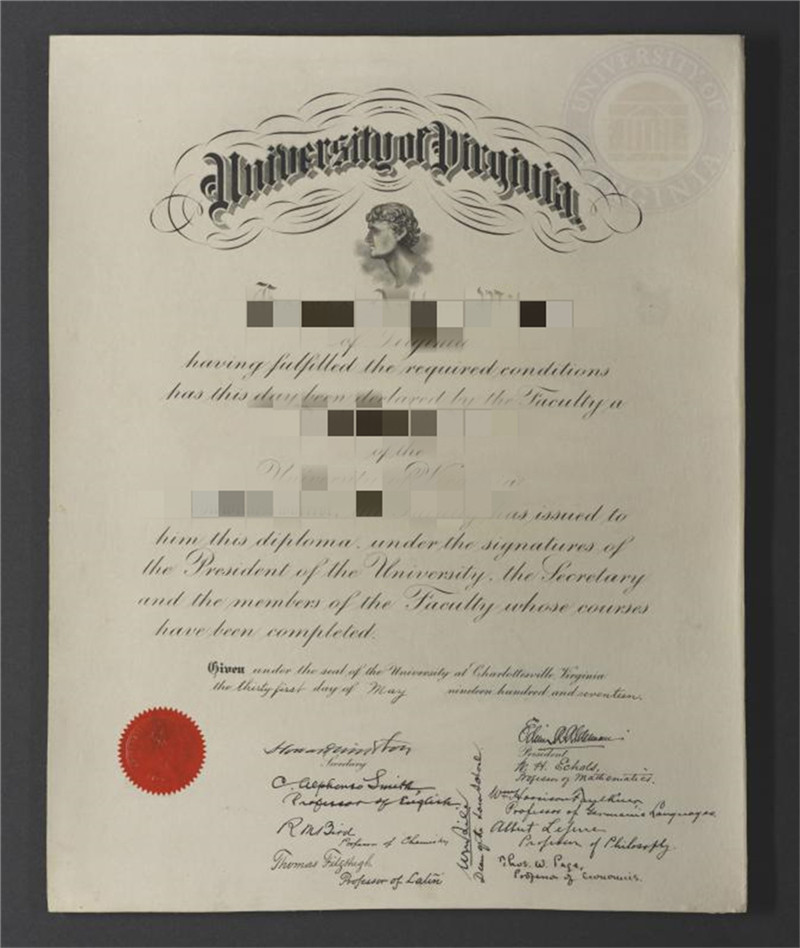 UNIVERSITY OF
VIRGINIA
University of Virginia.
of Virginia
having fulfilled the required conditions
has this day been declared by the Faculty a
of the
University
as issued to
him this diploma, under the signatures of
the President of the University, the Secretary
and the members of the Faculty whose courses
have been completed.
Given under the seal of the University at Charlottesville, Virginia
the thirty first day of May nineteen hundred and seventeen.
Secretary
C. Alphonso Smith,
Professor of English.
R M Bird
Professor of Chemistry
Thomas Fitzhugh
Professor of Latin
Dean of the
President.
W. H. Echols,
Professor of Mathematics.
Wm Harrison Faulkner
Professor of Germanic Languages.
Albert Lefevre
Professor of Philosophy.
Thos. W. Page,
Professor of Economics.